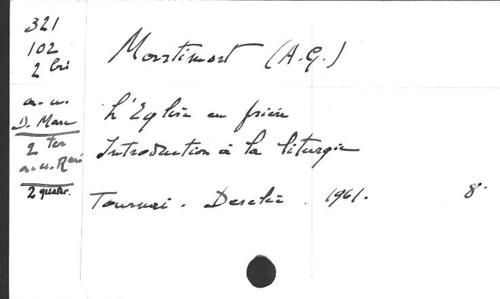 321
102
2 bis
a.u.
D. Marc
2 ter
a.u.
2 quater.
Martimort (A.G.)
L'Eglise en prière
Introduction à la liturgie
Tournai. Desclée. 1961. 8°